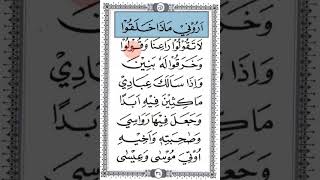 اَرُوْنِيْ مَاذَا خَلَقُوْا
لَا تَقُوْلُوْا رَاعِنَا وَقُوْلُوا
وَخَرَقُوْا لَهٗ بَنِيْنَ
وَاِذَا سَاَلَكَ عِبَادِيْ
مَاكِثِيْنَ فِيْهِ اَبَدًا
وَجَعَلَ فِيْهَا رَوَاسِيَ
وَصَاحِبَتِهٖ وَاَخِيْهِ
اُوْتِيَ مُوْسٰى وَعِيْسٰى